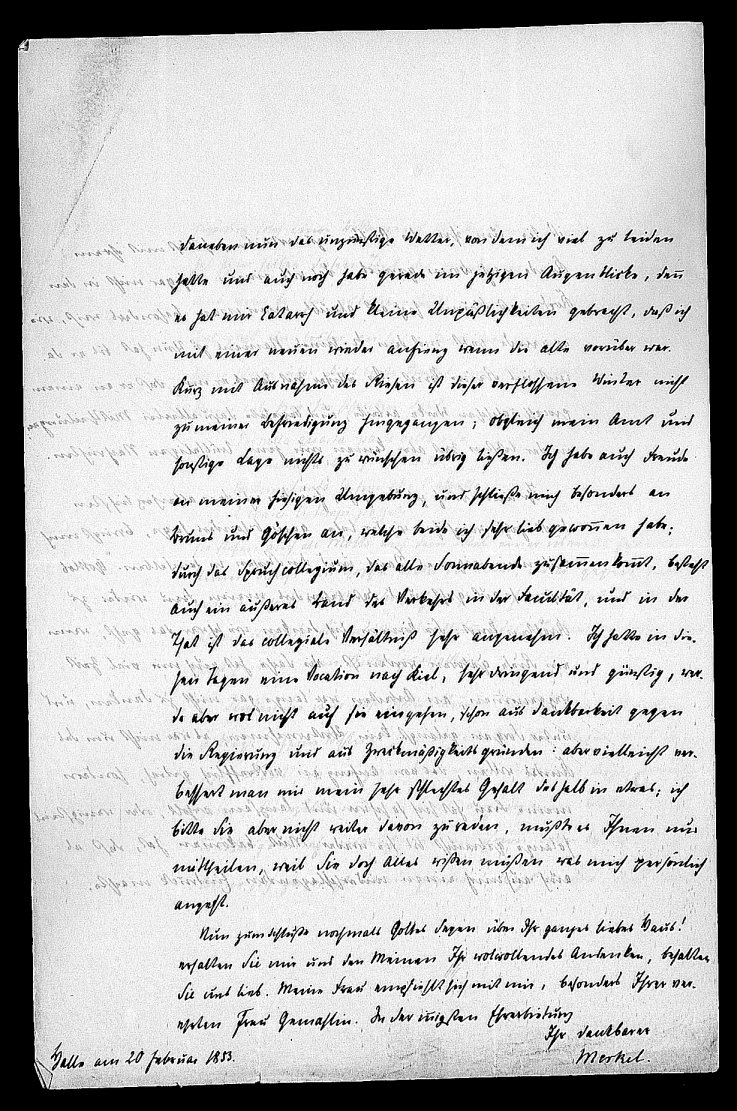 daneben nun das ungünstige Wetter, von dem ich viel zu leiden
hatte und auch noch habe gerade im jetzigen Augenblicke, denn
es hat mir Catarrh und kleine Unpäßlichkeiten gebracht, daß ich
mit einer neuen wieder anfieng wenn die alte vorüber war.
Kurz mit Ausnahme des Riesen ist dieser verflossene Winter nicht
zu meiner Befriedigung hingegangen; obgleich mein Amt und
sonstige Lage nichts zu wünschen übrig ließen. Ich habe auch Freude
an meiner hiesigen Umgebung, und schließe mich besonders an
Bruns und Göschen an, welche beide ich sehr lieb gewonnen habe;
durch das Spruchcollegium, das alle Sonnabende zusammenkommt, besteht
auch ein äußeres Band des Verkehrs in der Facultät, und in der
That ist das collegiale Verhältniß sehr angenehm. Ich hatte in die-
sen Tagen eine Vocation nach Kiel, sehr dringend und günstig, wer-
de aber wol nicht auf sie eingehen, schon aus Dankbarkeit gegen
die Regierung und aus Zweckmäßigkeitsgründen: aber vielleicht ver-
bessert man mir mein sehr schlechtes Gehalt deshalb in etwas; ich
bitte Sie aber nicht weiter davon zu reden, mußte es Ihnen nur
mittheilen, weil Sie doch Alles wißen müßen was mich persönlich
angeht.
Nun zum Schluße nochmals Gottes Segen über Ihr ganzes liebes Haus!
erhalten Sie mir und den Meinen Ihr wolwollendes Andenken, behalten
Sie uns lieb. Meine Frau empfiehlt sich mit mir, besonders Ihrer ver-
ehrten Frau Gemahlin. In der innigsten Ehrerbietung
Ihr dankbarer
Merkel.
Halle am 20 Februar 1853.